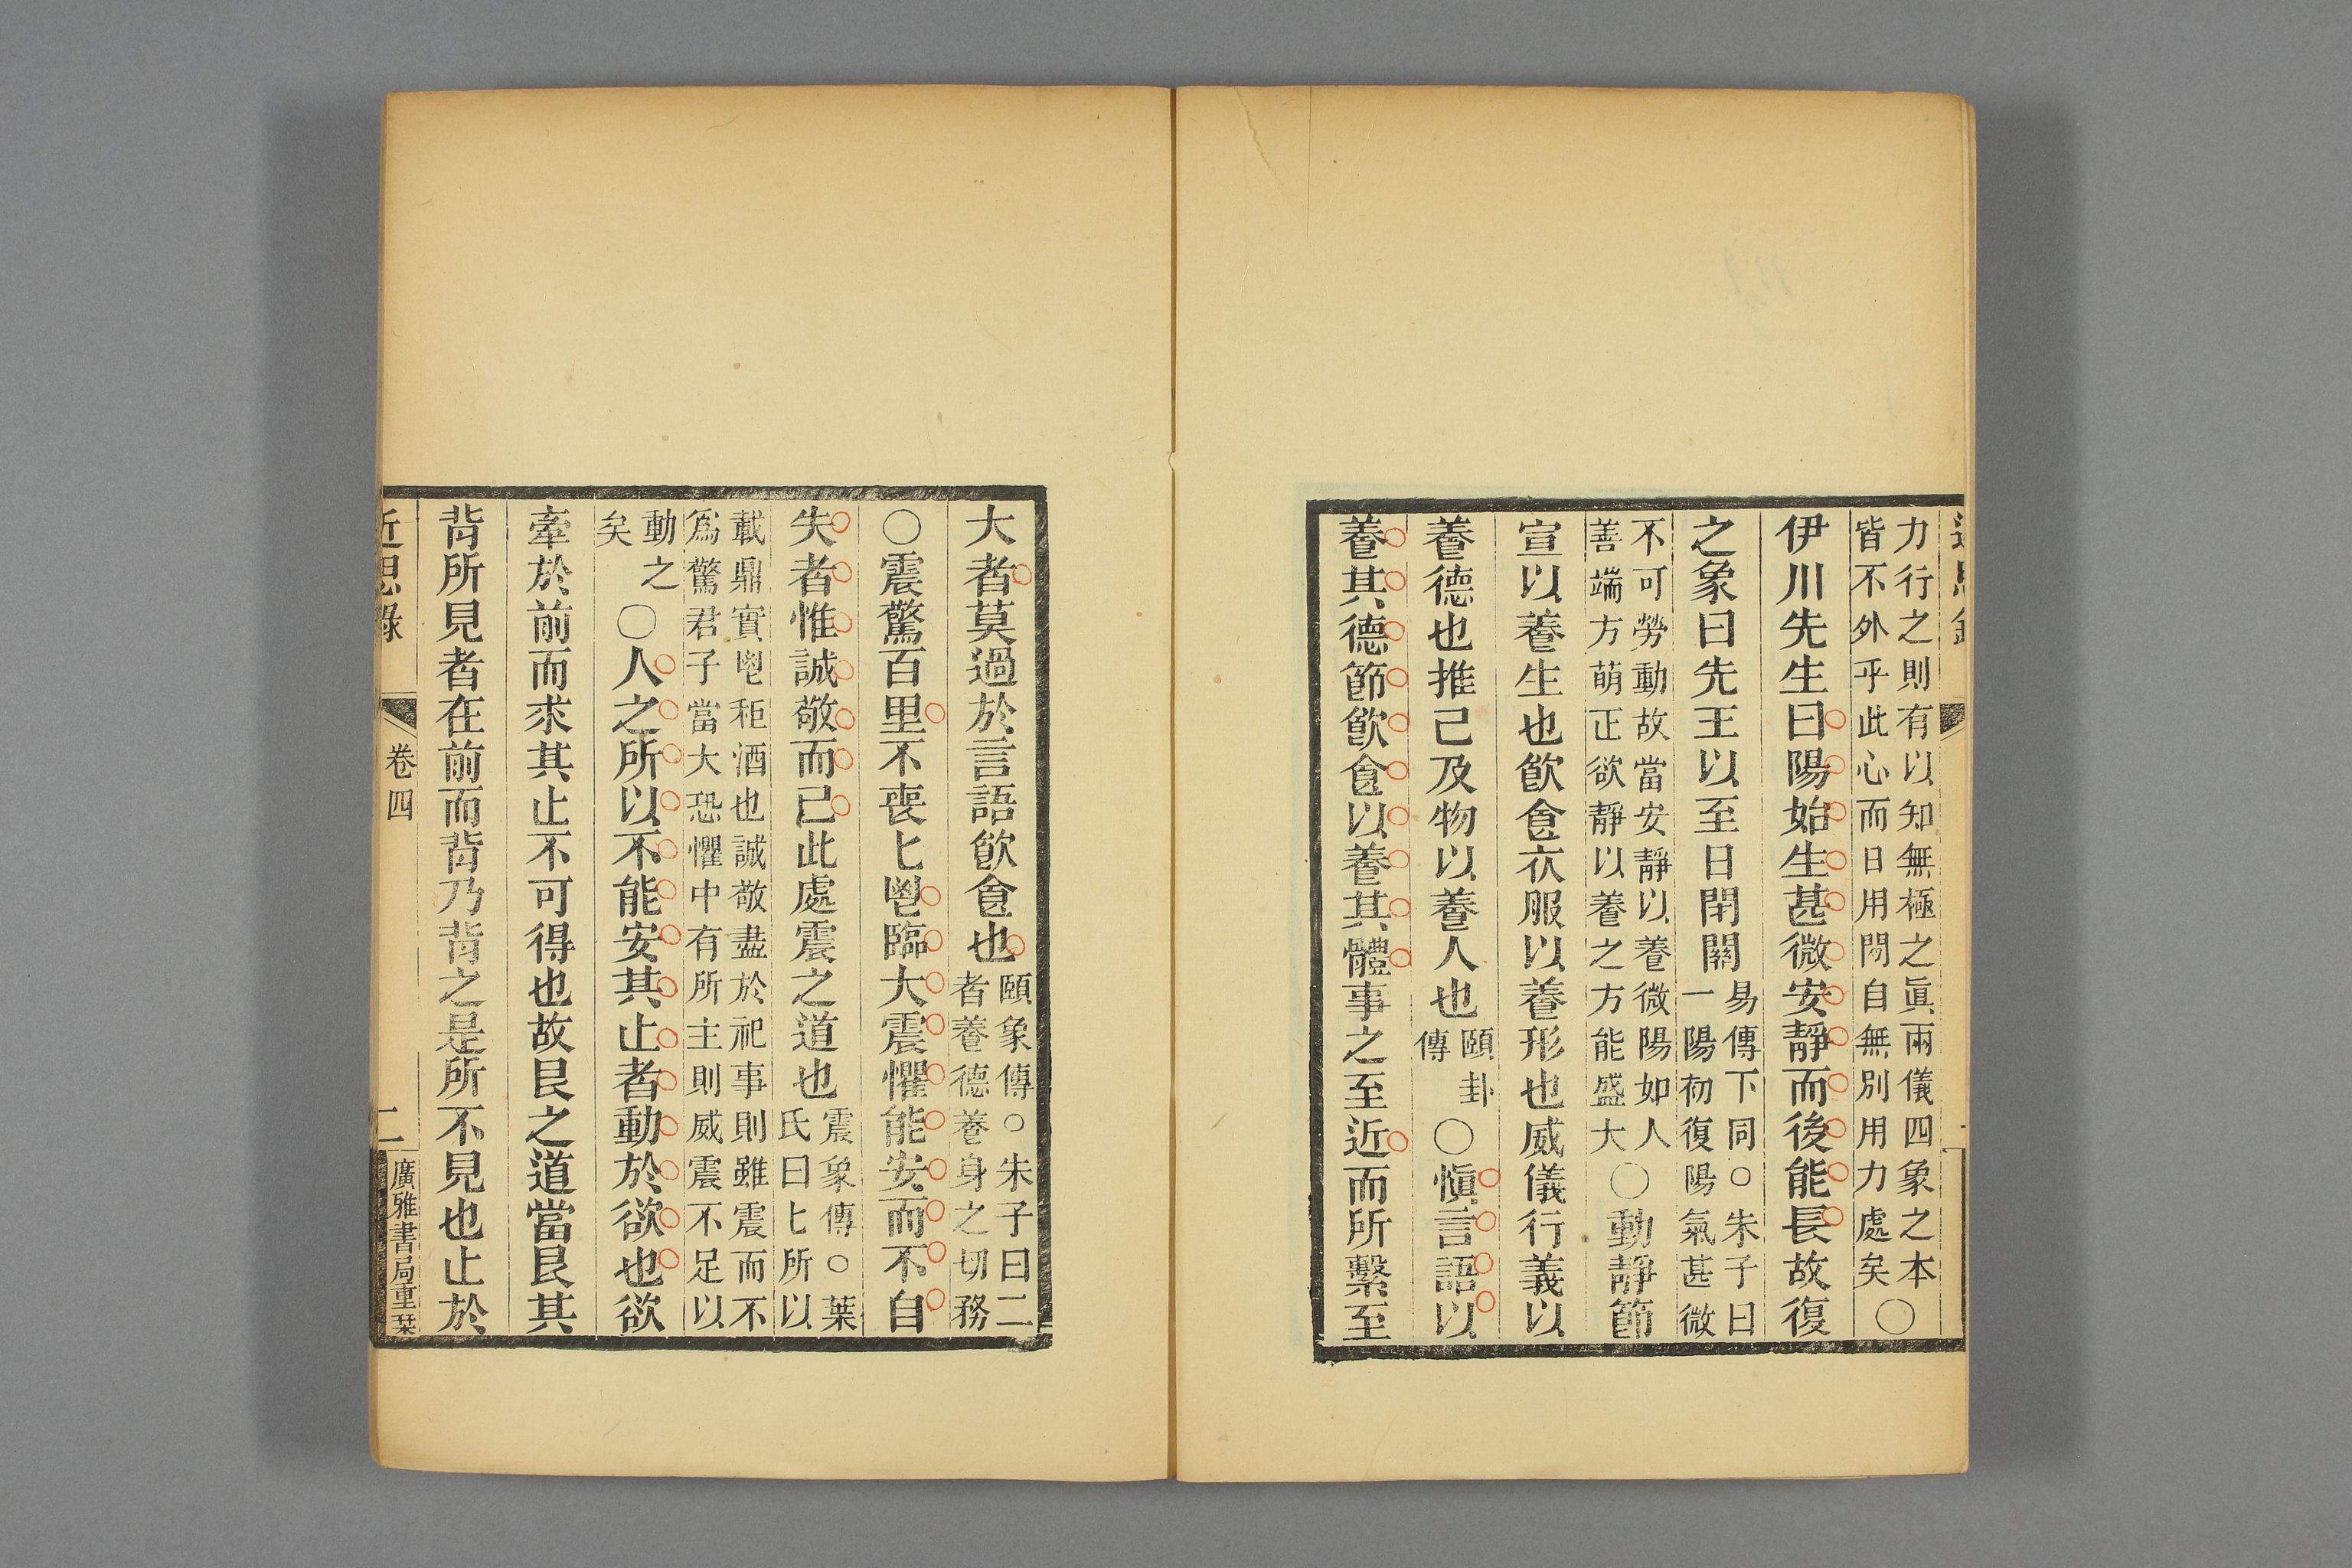 力行之則有以知無極之眞兩儀四象之本
皆不外乎此心而日用閒自無別用力處矣○
伊川先生曰陽始生甚微安靜而後能長故復
之象曰先王以至日閉關
易傳下同○朱子曰
一陽初復陽氣甚微
不可勞動故當安靜以養微陽如人
善端方萌正欲靜以養之方能盛大
○動靜節
宣以養生也飮食衣服以養形也威儀行義以
養德也推己及物以養人也
頤卦
傳
○愼言語以
養其德節飮食以養其體事之至近而所繫至
大者莫過於言語飮食也
頤象傳○朱子曰二
者養德養身之切務
○震驚百里不喪匕鬯臨大震懼能安而不自
失者惟誠敬而已此處震之道也
震象傳○葉
氏曰匕所以
載鼎實鬯秬酒也誠敬盡於祀事則雖震而不
爲驚君子當大恐懼中有所主則威震不足以
動之
矣
○人之所以不能安其止者動於欲也欲
牽於前而求其止不可得也故艮之道當艮其
背所見者在前而背乃背之是所不見也止於
近思錄
卷四
二
廣雅書局重栞